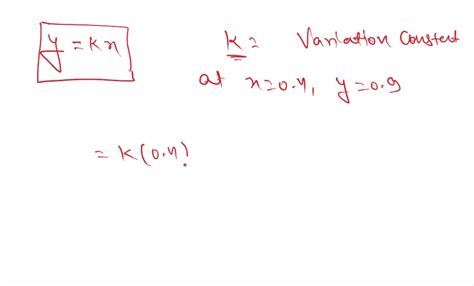 y = kx
k = Variation constant
at x=0.4, y=0.9
= k(0.4)